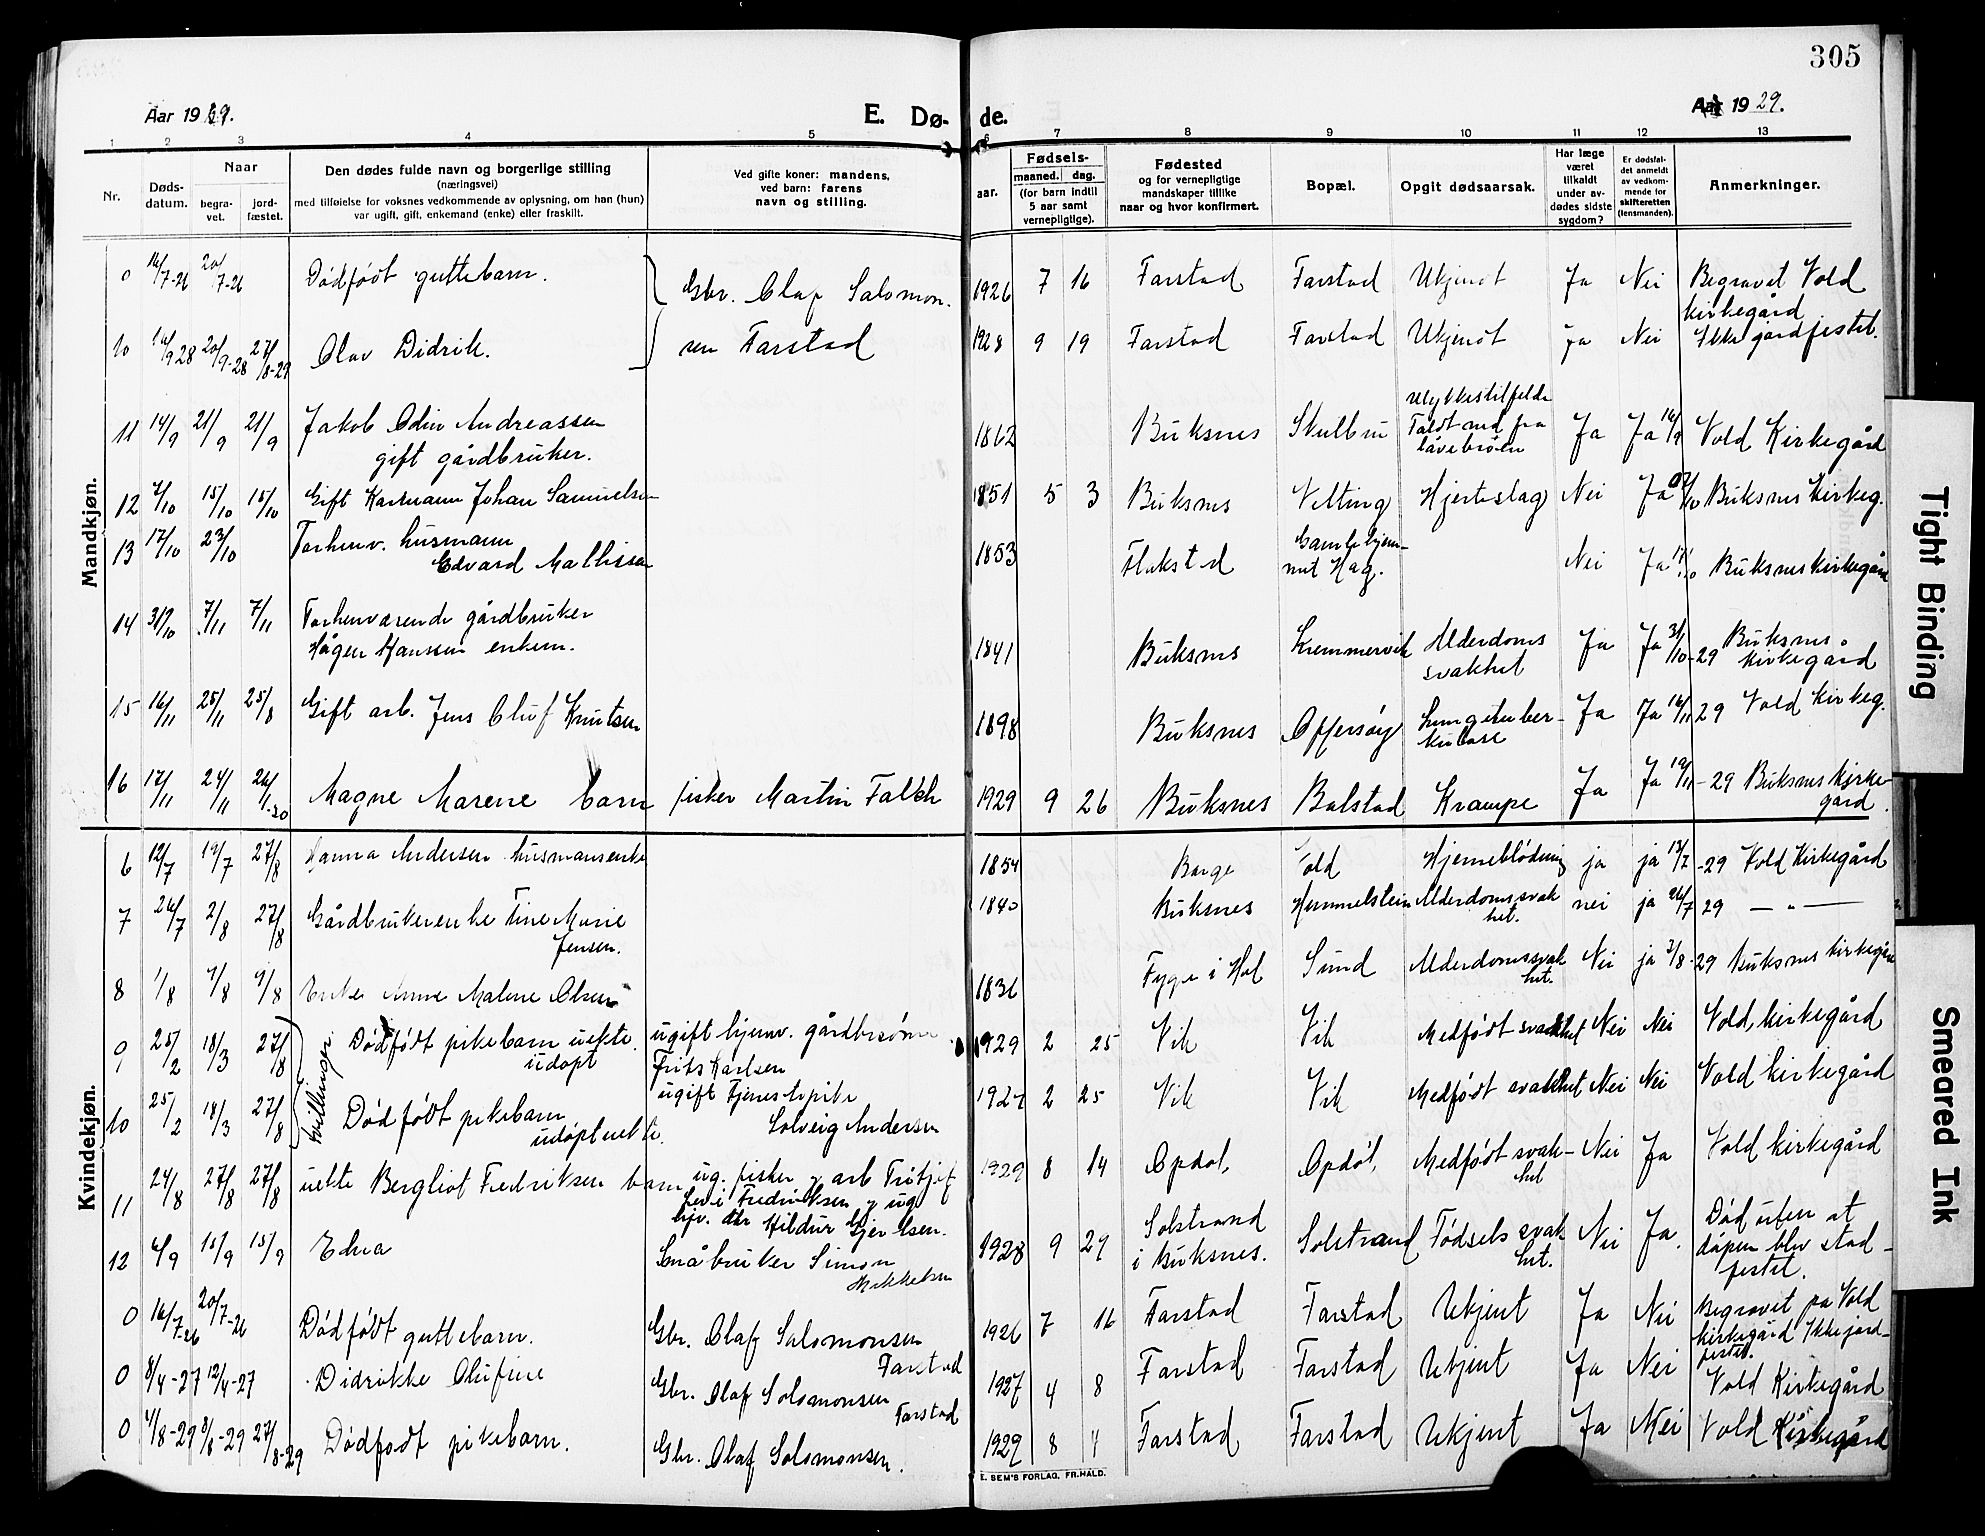 305
Aar 1929.
E. Dø- de.
Aar 1929.
1 2 3 4 5 6 7 8 9 10 11 12 13
Nr.
Døds-
datum.
Naar
begra-
vet.
jord-
fæstet.
Den dødes fulde navn og borgerlige stilling
(næringsvei)
med tilføielse for voksnes vedkommende av oplysning, om han (hun)
var ugift, gift, enkemand (enke) eller fraskilt.
Ved gifte koner: mandens,
ved barn: farens
navn og stilling.
Fødsels-
aar. maaned. dag.
(for barn indtil
5 aar samt
vernepligtige).
Fødested
og for vernepligtige
mandskaper tillike
naar og hvor konfirmert.
Bopæl.
Opgit dødsaarsak.
Har læge
været
tilkaldt
under av-
dødes sidste
sygdom?
Er dødsfal-
det anmeldt
av vedkom-
mende for
skifteretten
(lensmanden).
Anmerkninger.
Mandkjøn.
0 16/7-26 20/7-26 Dødfødt guttebarn. Gbr. Olaf Salomon- 1926 7 16 Farstad Farstad Ukjendt Ja Nei Begravet Vold
kirkegård
10 16/9-28 20/9-28 27/8-29 Olav Didrik. sen Farstad 1928 9 19 Farstad Farstad Ukjendt Ja Nei Ikke jordfestet.
11 14/9 21/9 21/9 Jakob Odin Andreassen
gift gårdbruker. 1862 Buksnes Skulbru Ulykkestilfelde
Faldt ned fra
låvebroen Ja Ja 16/9 Vold Kirkegård
12 7/10 15/10 15/10 Gift Karmann Johan Samuelsen 1851 5 3 Buksnes Vetting Hjerteslag Nei Ja Buksnes Kirkeg.
13 17/10 23/10 Forhenv. husmann
Edvard Mathissen 1853 Flakstad Gamlehjem-
met Hag. Nei Ja Buksnes kirkegård
14 31/10 7/11 7/11 Forhenværende gårdbruker
Hågen Hanssen enkem. 1841 Buksnes Kremmervik Alderdoms
svakhet Ja Ja 31/10-29 Buksnes
kirkegård
15 16/11 25/11 25/8 Gift arb. Jens Oluf Knutsen 1898 Buksnes Offersøy Lungetuber-
kulose Ja Ja 16/11 29 Vold Kirkeg.
16 17/11 24/11 Magne Marene barn fisker Martin Falch 1929 9 26 Buksnes Balstad Krampe Ja Ja 19/11-29 Buksnes kirke-
gård
Kvindekjøn.
6 12/7 19/7 27/8 Hanna Andersen husmansenke 1854 Borge Vold Hjerneblødning ja ja 13/7-29 Vold Kirkegård
7 26/7 2/8 27/8 Gårdbrukerenke Tine Marie
Jensen. 1840 Buksnes Hemmelstein Alderdomssvak
het. nei ja 26/7 29 — " —
8 1/8 9/8 9/8 Enke Anne Malene Olsen 1836 Fygle i Hol Sund Alderdomssvak
het. Nei ja 3/8-29 Buksnes kirkegård
tvillinger
9 25/2 18/3 27/8 Dødfødt pikebarn uekte
udøpt ugift hjemv. gårdbrsønn
Frits Karlsen 1929 2 25 Vik Vik Medfødt svakhet Nei Nei Vold kirkegård
10 25/2 18/3 27/8 Dødfødt pikebarn
udøpt uekte. ugift Tjenestepike
Solveig Andersen 1929 2 25 Vik Vik Medfødt svakhet Nei Nei Vold kirkegård
11 24/8 27/8 27/8 uekte Bergliot Fredriksen barn ug. fisker og arb
Fredriksen og ug.
hjv. dtr Hildur 1929 8 14 Opdøl, Opdøl, Medfødt svak-
het Nei Ja Vold kirkegård
12 6/9 15/9 15/9 Edna Småbruker Simon
Mikkelsen 1928 9 27 Solstrand
i Buksnes. Solstrand Fødsels svak
het. Nei Ja. Død uten at
dåpen blev stad-
festet.
0 16/7-26 20/7-26 Dødfødt guttebarn. Gbr. Olaf Salomonsen
Farstad 1926 7 16 Farstad Farstad Ukjent Ja Nei Begravet på Vold
kirkegård Ikke jord-
festet.
0 8/4-27 12/4-27 Didrikke Olufine Gbr. Olaf Solomonsen
Farstad 1927 4 8 Farstad Farstad Ukjent Ja Nei Vold Kirkegård
0 4/8-29 8/8-29 27/8-29 Dødfødt pikebarn. Gbr. Olaf Solomonsen. 1929 8 4 Farstad Farstad Ukjent Ja Nei Vold Kirkegård
E. SEM'S FORLAG, FR.HALD.
Tight Binding
Smeared Ink